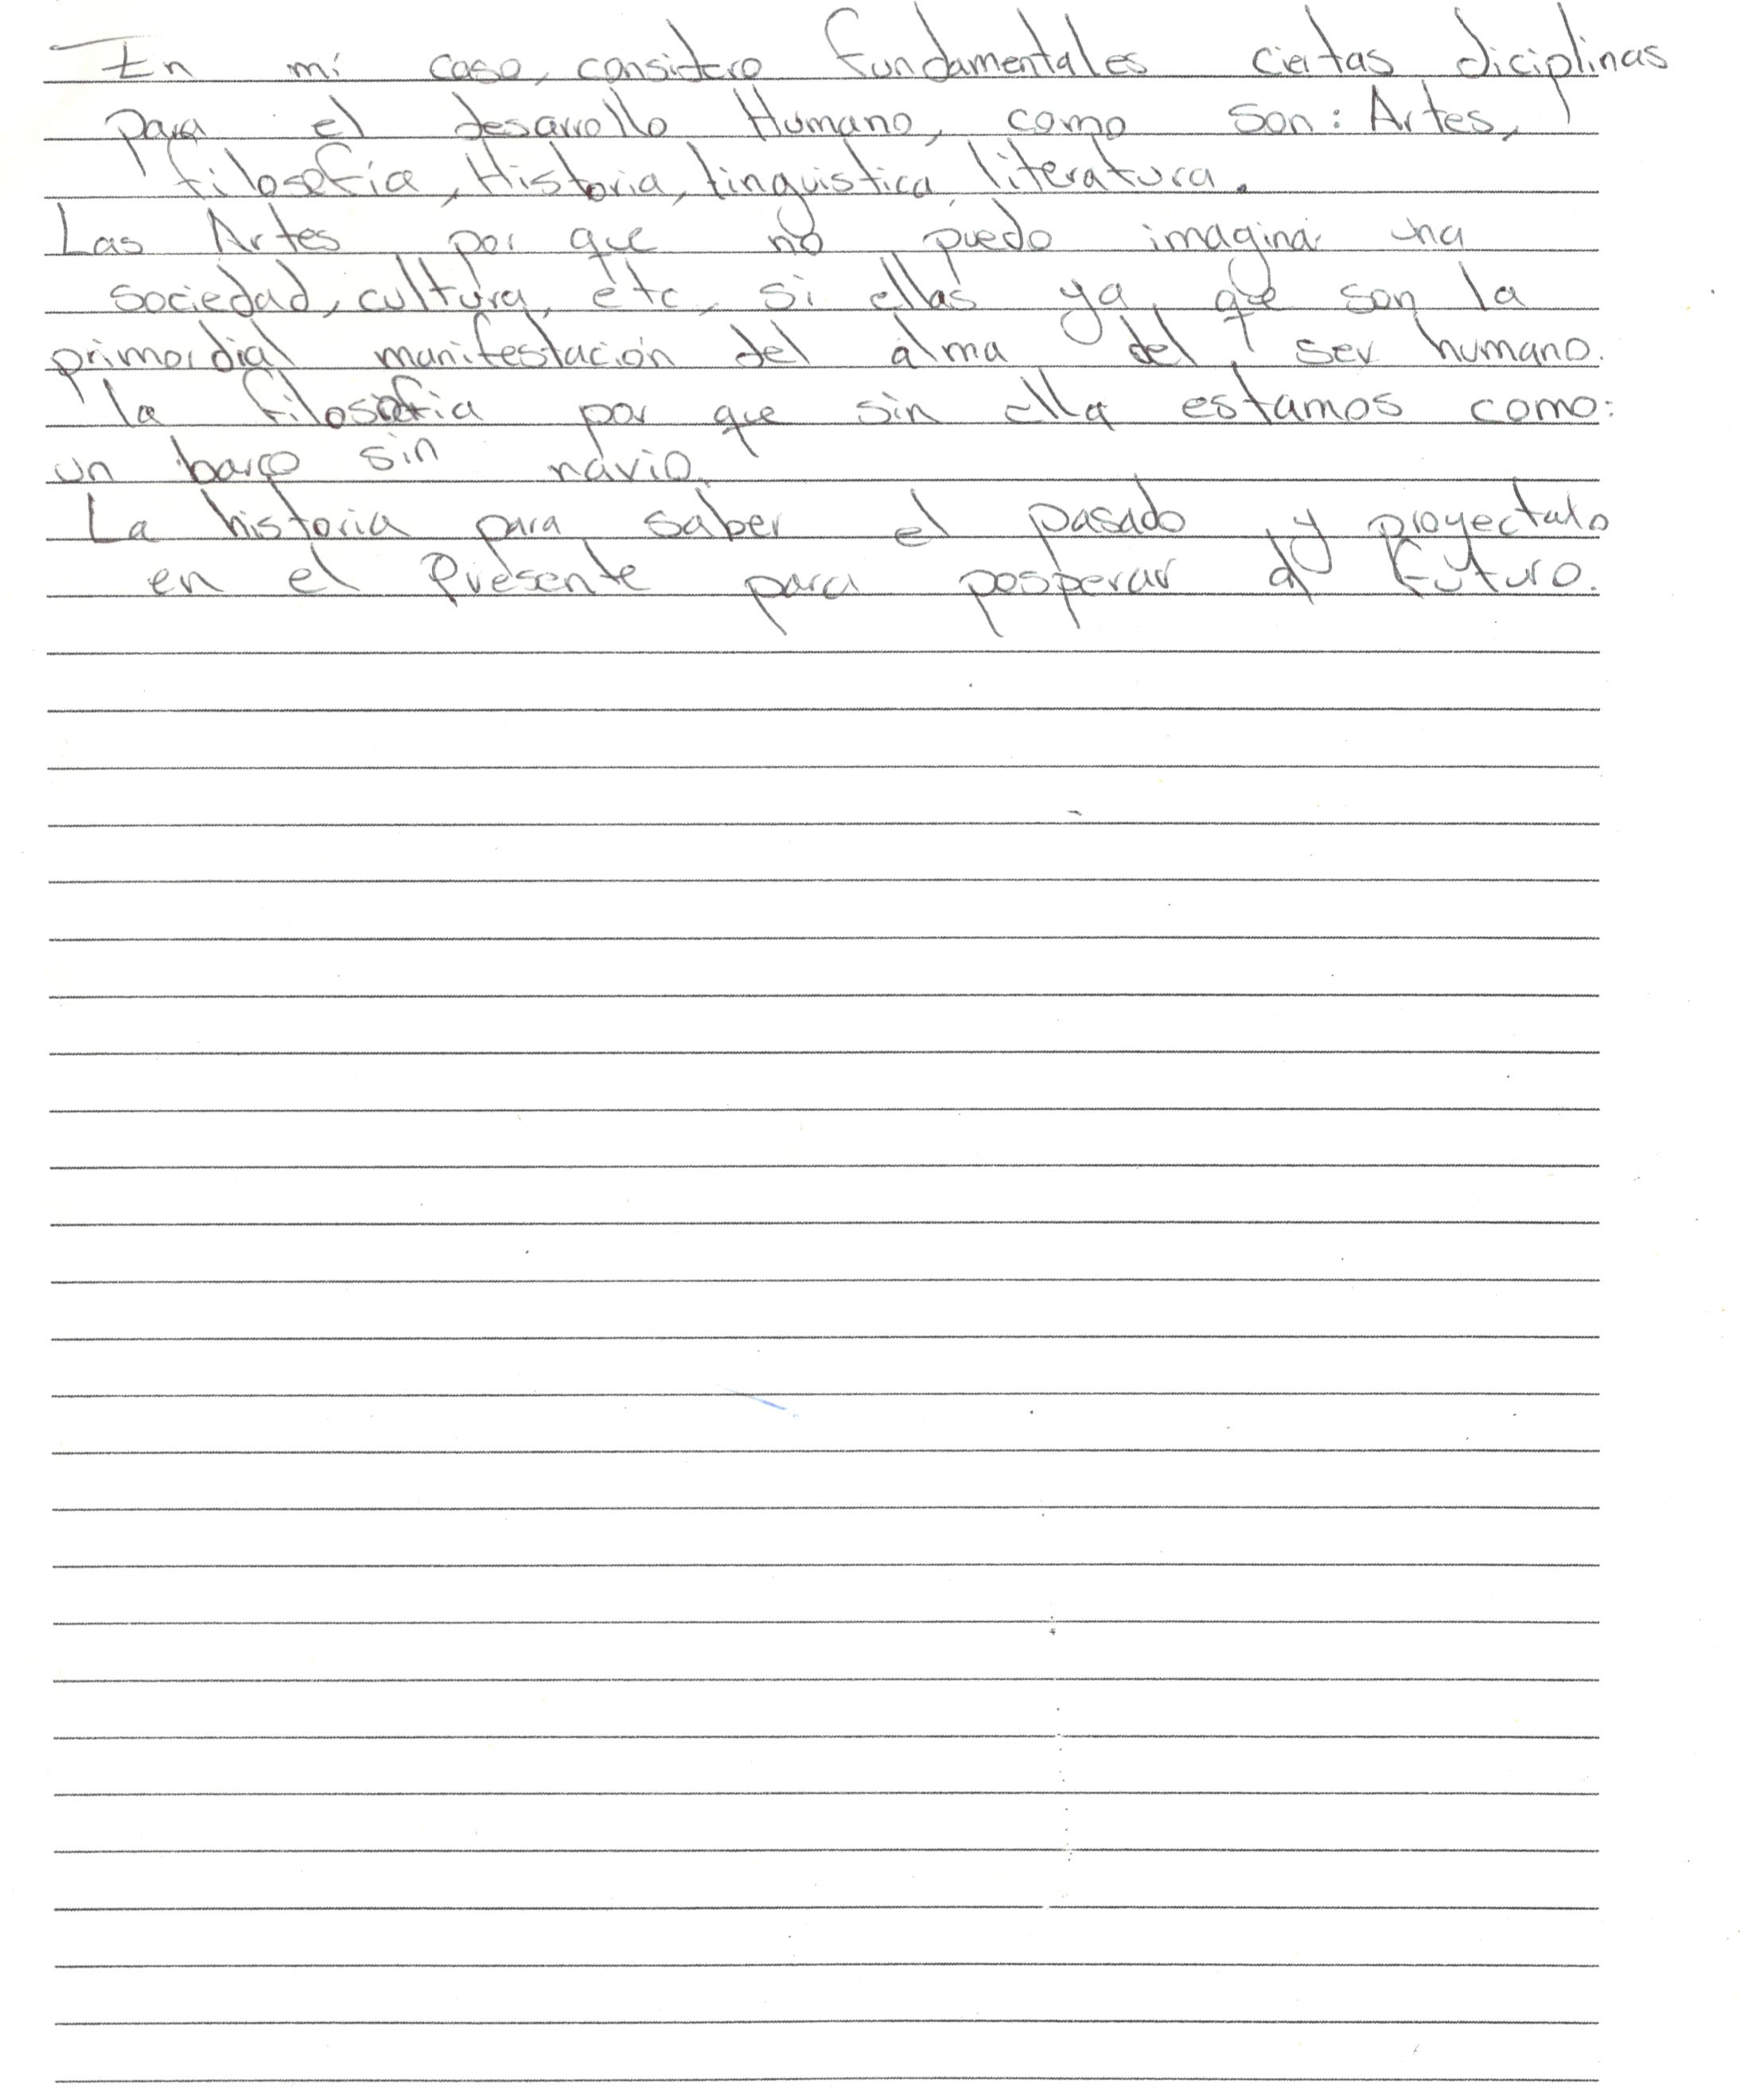 En mi caso, considero fundamentales ciertas diciplinas
para el desarrollo Humano, como son: Artes,
filosofía, Historia, linguistica, literatura.
Las Artes por que no puedo imaginar una
sociedad, cultura, etc, si ellas ya que son la
primordial manifestación del alma del ser humano.
la filosofia por que sin ella estamos como:
un barco sin navio.
La historia para saber el pasado y proyectalo
en el Presente para posperar al futuro.